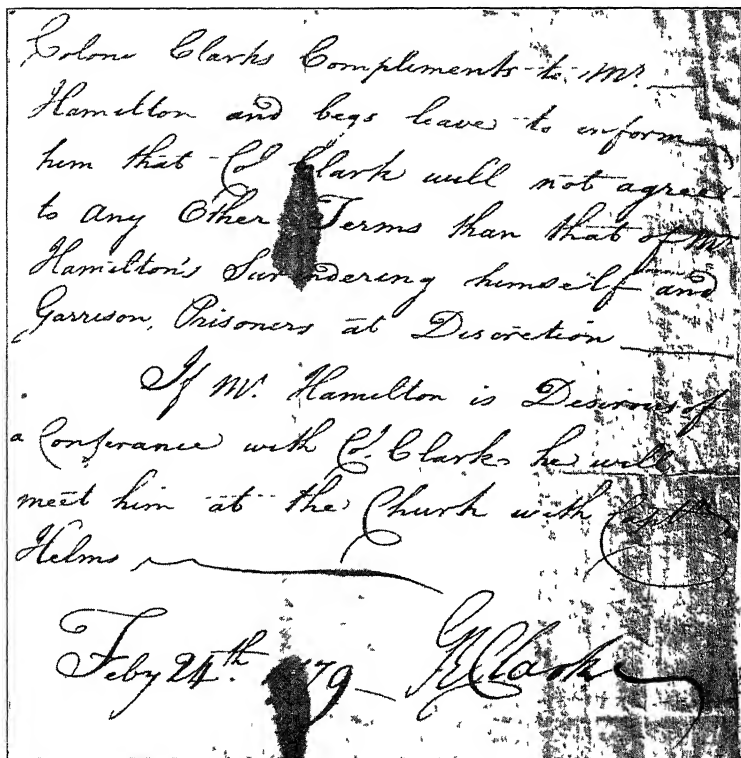 Colone Clarks Compliments to Mr.
Hamilton and begs leave to inform
him that Col Clark will not agree
to any Other Terms than that of Mr
Hamilton's Surendering himself and
Garrison, Prisoners at Discretion
If Mr. Hamilton is Desirous of
a Conferance with Col. Clark he will
meet him at the Church with Captn
Helms
Feby 24th. 1779 GR Clark